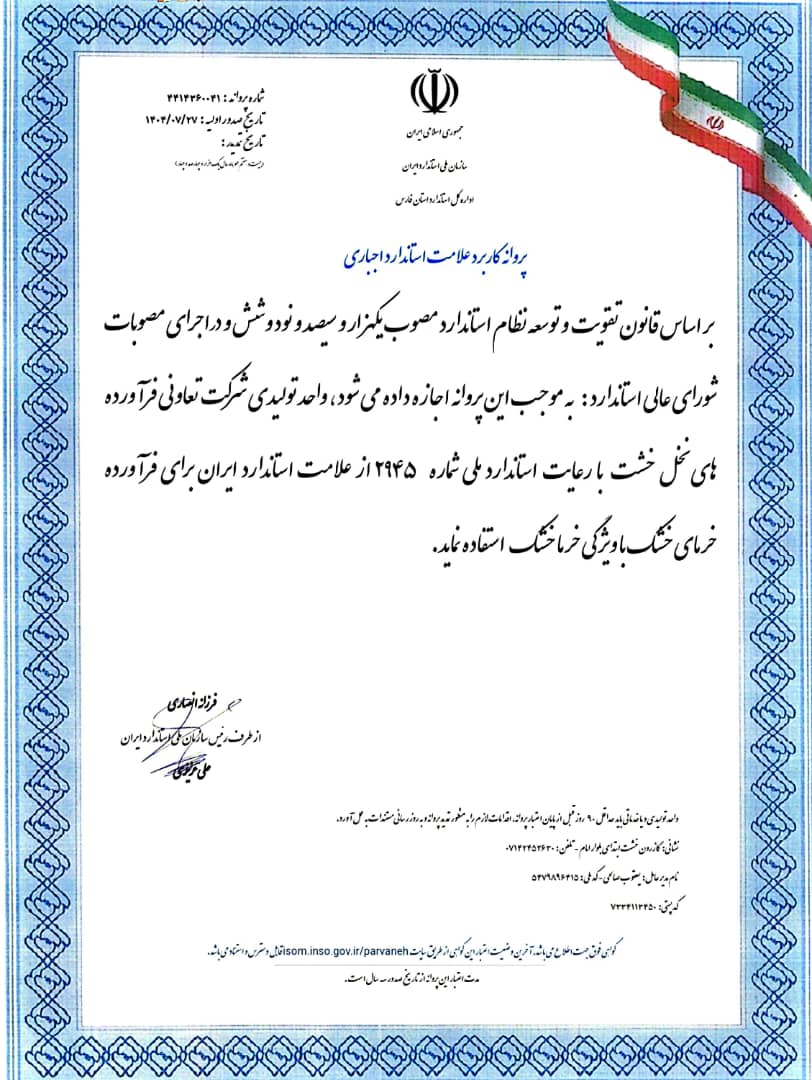 شماره پروانه: ۴۴۱۴۳۶۰۰۴۱
تاریخ صدور اولیه: ۱۴۰۴/۰۷/۲۷
تاریخ تمدید:
(بیست و هفتم مهر ماه سال یک هزار و چهارصد و چهار)
جمهوری اسلامی ایران
سازمان ملی استاندارد ایران
اداره کل استاندارد استان فارس
پروانه کاربرد علامت استاندارد اجباری
بر اساس قانون تقویت و توسعه نظام استاندارد مصوب یکهزار و سیصد و نود و شش و در اجرای مصوبات
شورای عالی استاندارد: به موجب این پروانه اجازه داده می شود، واحد تولیدی شرکت تعاونی فرآورده
های نخل خشت با رعایت استاندارد ملی شماره ۲۹۴۵ از علامت استاندارد ایران برای فرآورده
خرمای خشک با ویژگی خرما خشک استفاده نماید.
فرزانه انصاری
از طرف رئیس سازمان ملی استاندارد ایران
علی
واحد تولیدی و یا خدماتی باید حداقل ۹۰ روز قبل از پایان اعتبار پروانه، اقدامات لازم را به منظور تمدید پروانه و به روز رسانی مستندات به عمل آورد.
نشانی: کازرون خشت ابتدای بلوار امام - تلفن: ۰۷۱۴۲۴۵۲۶۳۰
نام مدیر عامل: یعقوب صالحی - کد ملی: ۵۴۷۹۸۹۶۴۱۵
کد پستی: ۷۳۳۴۱۱۳۴۵۰
گواهی فوق جهت اطلاع می باشد، آخرین وضعیت اعتبار این گواهی از طریق سایت isom.inso.gov.ir/parvaneh قابل دسترس و استناد می باشد.
مدت اعتبار این پروانه از تاریخ صدور سه سال است.